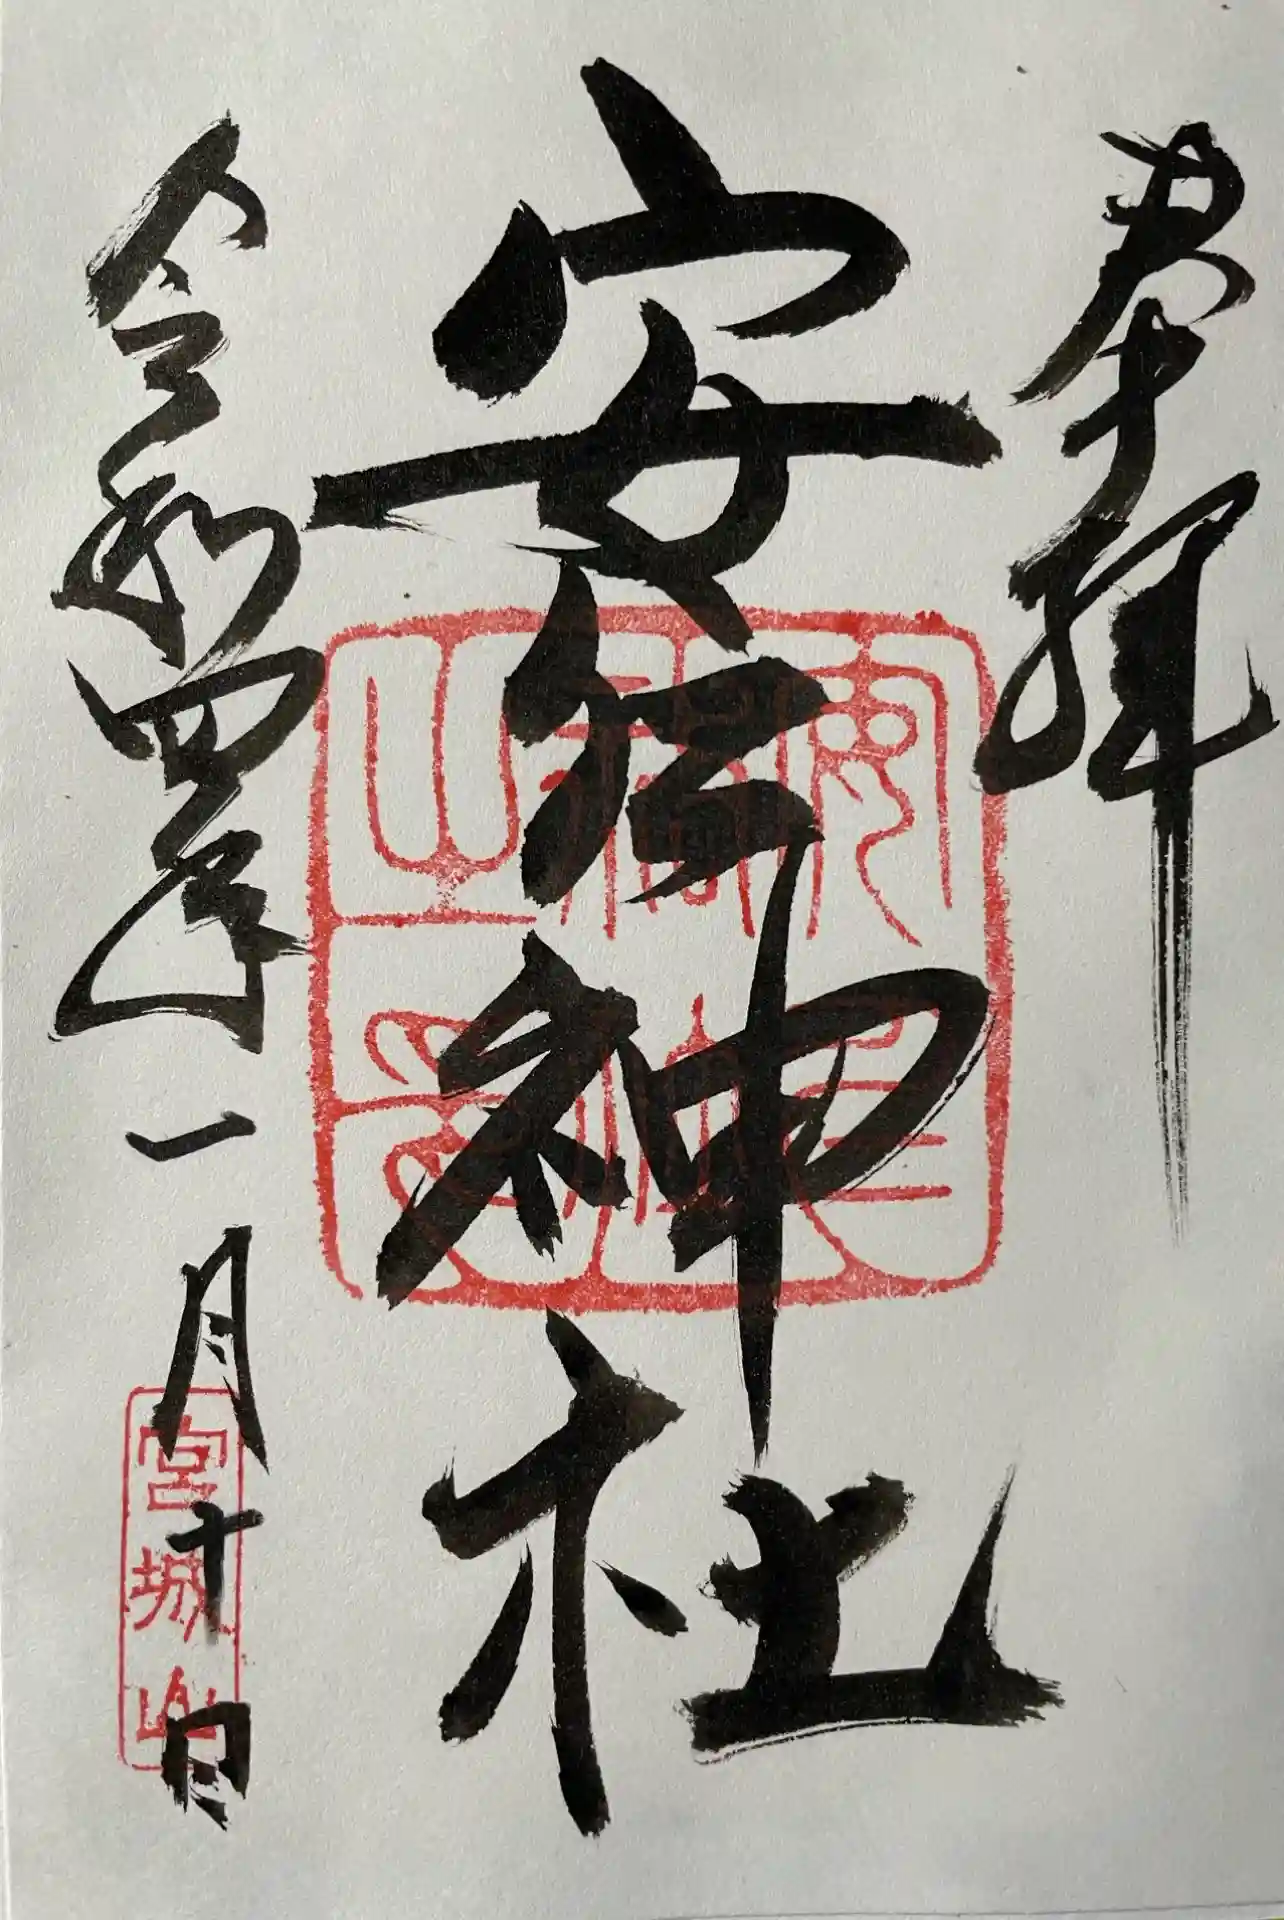 奉拝
安仁神社
令和四年一月十日
宮城山